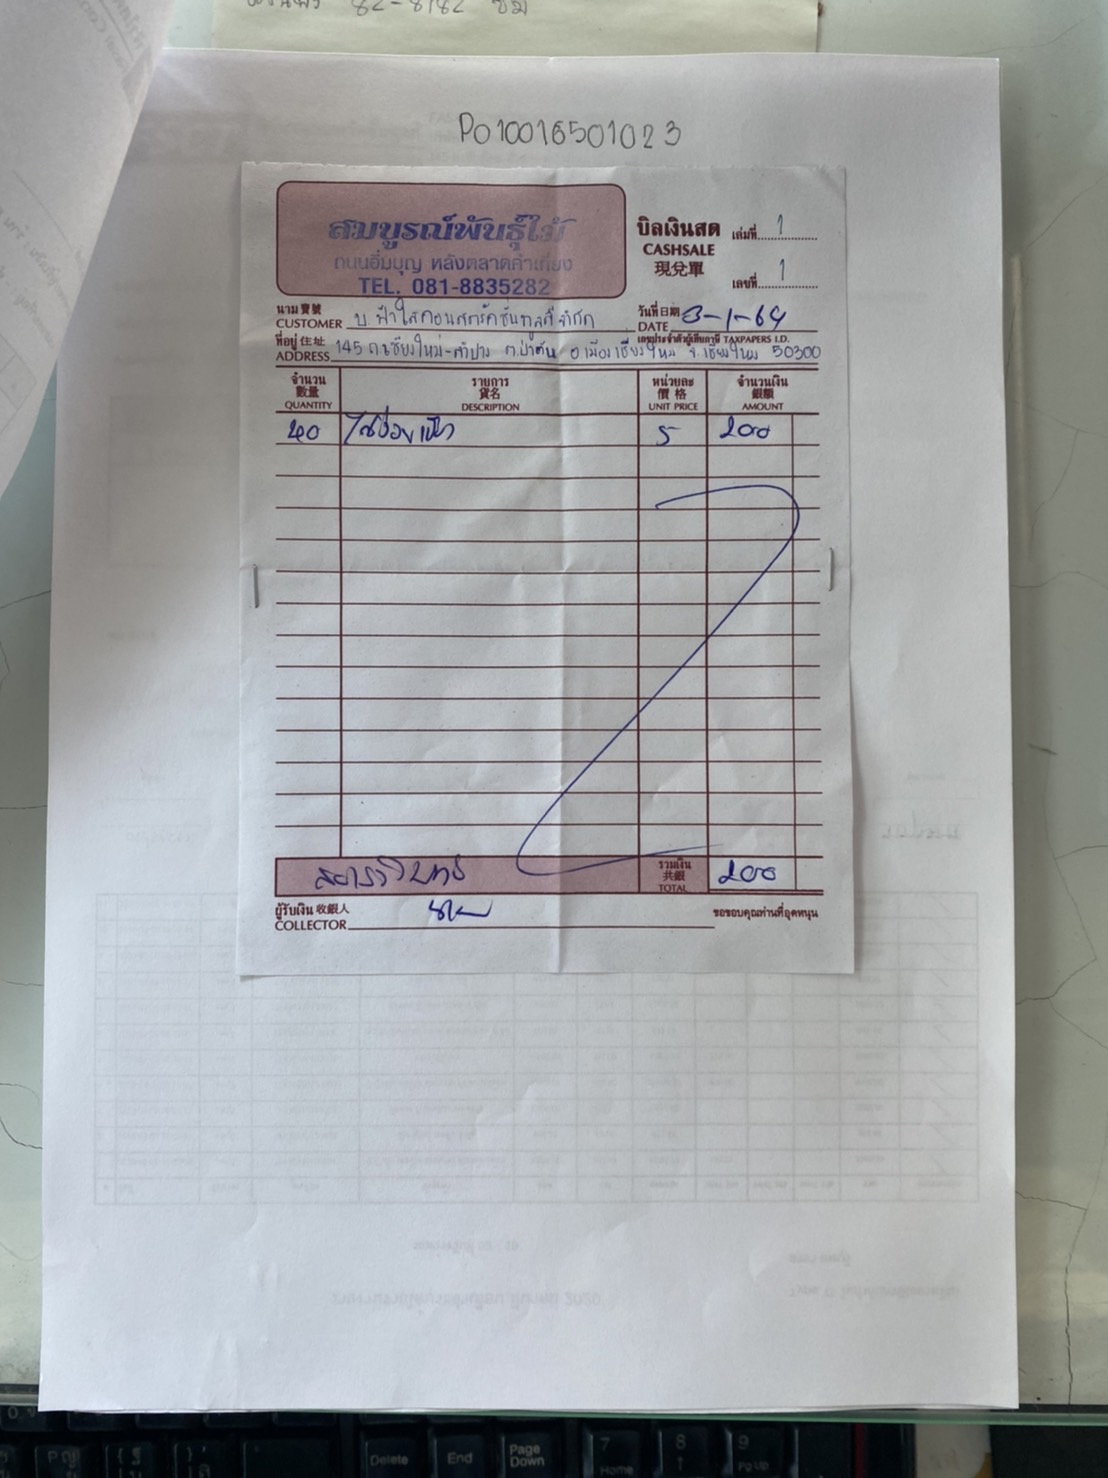 PO10016501023
สมบูรณ์พันธุ์ไม้
ถนนอิ่มบุญ หลังตลาดคำเที่ยง
TEL. 081-8835282
บิลเงินสด
CASHSALE
現兌單
เล่มที่ 1
เลขที่ 1
นาม 寶號
CUSTOMER บ. ฟ้าใสคอนสตรัคชั่นทูลส์ จำกัด
วันที่ 日期
DATE 3-1-64
ที่อยู่ 住址
ADDRESS 145 ถ.เชียงใหม่-ลำปาง ต.ป่าตัน อ.เมืองเชียงใหม่ จ.เชียงใหม่ 50300
เลขประจำตัวผู้เสียภาษี TAXPAPERS I.D.
จำนวน 數量 QUANTITY
รายการ 貨名 DESCRIPTION
หน่วยละ 價格 UNIT PRICE
จำนวนเงิน 銀額 AMOUNT
40 5 200
รวมเงิน 共銀 TOTAL 200
ผู้รับเงิน 收銀人
COLLECTOR
ขอขอบคุณท่านที่อุดหนุน
Delete End Page Down 7 Home 8 9 PgUp